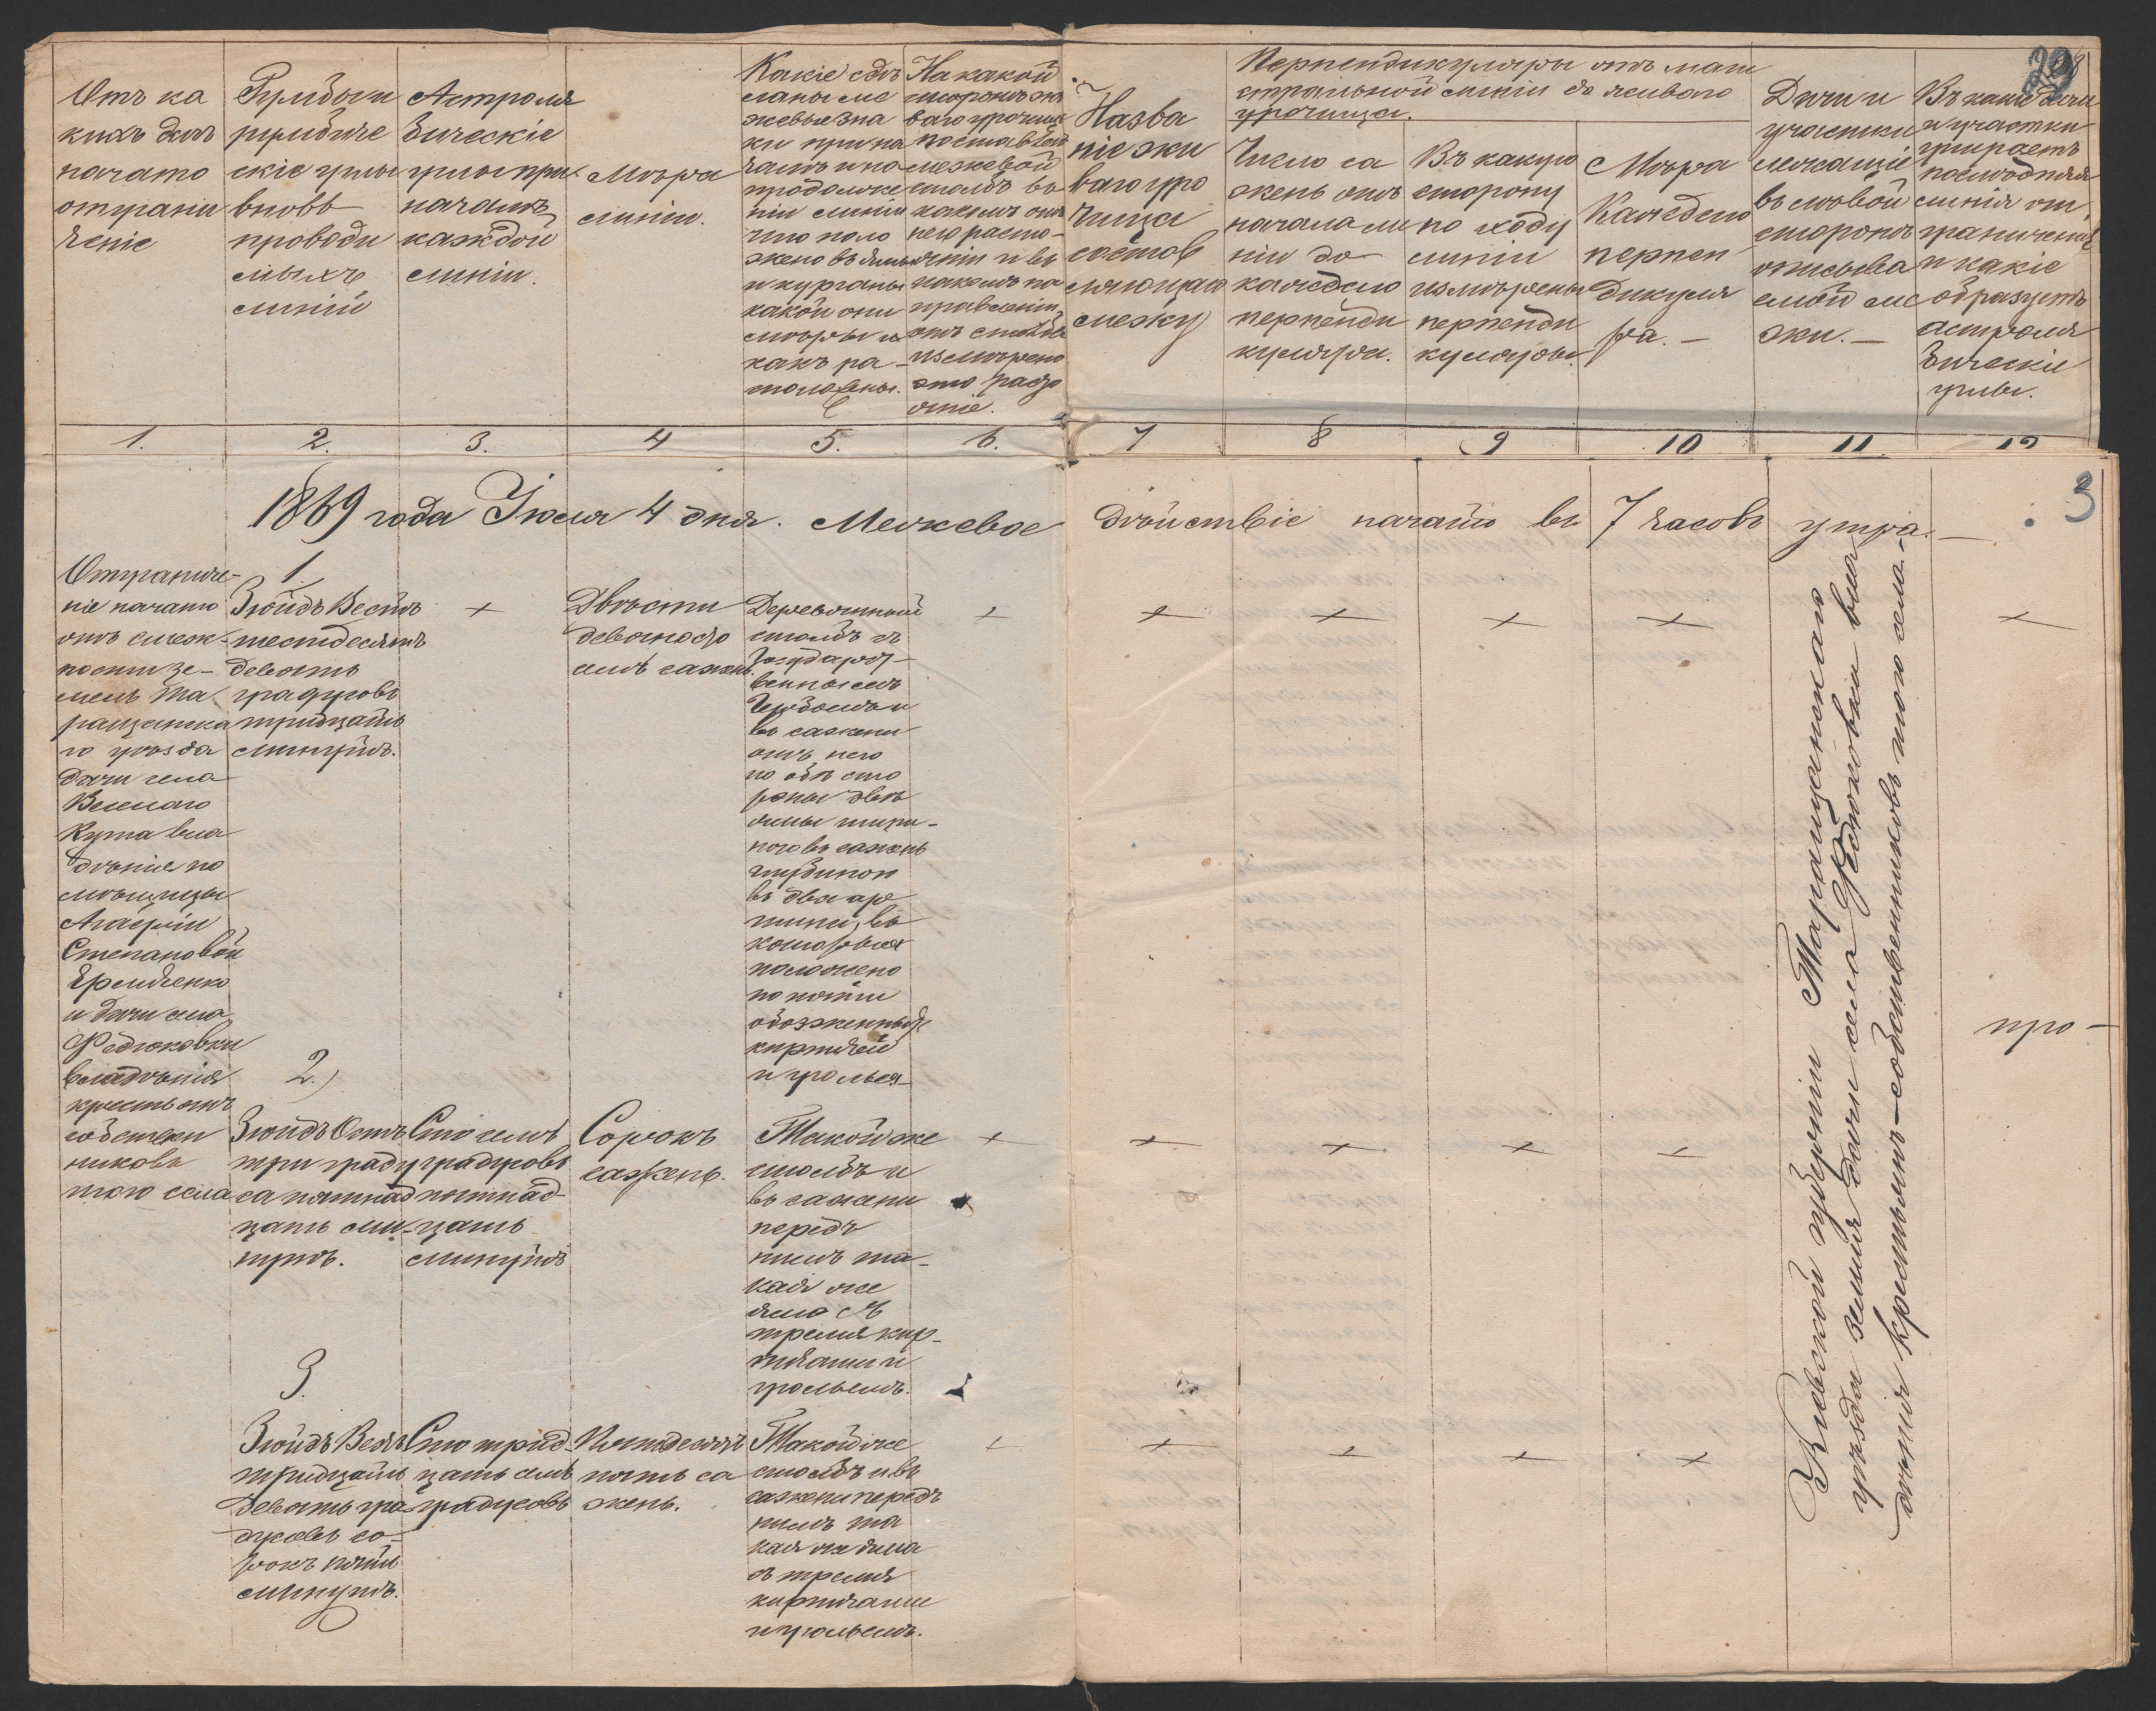 29
Отъ ка
кихъ дачъ
начато
отграни
ченіе
Румбы и
румбиче
скіе углы
вновь
проводи
мыхъ
линій
Астроля
бическіе
углы при
началѣ
каждой
линіи.
Мѣра
линіи.
Какіе сдѣ
ланы ме
жевые зна
ки при на
чалѣ и на
продолже
ніи линіи
что поло
жено въ ямы
и курганы
какой они
мѣры и
какъ ра-
сположены.
На какой
сторонѣ жи
ваго урочища
поставленъ
межевой
столбъ въ
какомъ отъ
него разсто-
яніи и въ
какомъ на
правленіи
отъ столба
измѣрено
это разсто
яніе.
Назва
ніе жи
ваго уро
чища
состав
ляющаго
межу
Перпендикуляры отъ маги
стральной линіи до живого
урочища.
Число са
жень отъ
начала ли
ніи до
каждаго
перпенди
куляра.
Въ какую
сторону
по ходу
линіи
измѣрены
перпенди
куляры.
Мѣра
каждаго
перпен
дикуля
ра. —
Дачи и
участки
лежащіе
въ лѣвой
сторонѣ
описыва
емой ме
жи. —
Въ какіе дачи
и участки
упирается
послѣдняя
линія от
граниченія
и какіе
образуетъ
астроля
бическіе
углы.
1. 2. 3. 4 5. 6. 7 8 9 10 11. 12
3
1869 года Іюля 4 дня. Межевое дѣйствіе начато въ 7 часовъ утра. —
Отграниче-
ніе начато
отъ смеж-
ности зе-
мель Та
ращанска
го уѣзда
дачи села
Веселаго
Кута вла
дѣніе по
мѣщицы
Агафіи
Степановой
Ярмоленко
и дачи села
Федюковки
владѣнія
крестьянъ
собствен
никовъ
того села
1.
Зюйдъ Вестъ
шестьдесятъ
девять
градусовъ
тридцать
минутъ.
+
Двѣсти
девяносто
семь сажень.
Деревянный
столбъ съ
Государст-
веннымъ
Гербомъ и
въ сажени
отъ него
по обѣ сто
роны двѣ
ямы шири-
ною въ сажень
глубиною
въ два ар
шина, въ
которыя
положено
по пяти
обожженныхъ
кирпичей
и уголья
+ + + + + +
2.)
Зюйдъ Остъ
три граду
са пятнад
цать ми-
нутъ.
Сто семь
градусовъ
пятнад-
цать
минутъ
Сорокъ
сажень.
Такой же
столбъ и
въ сажени
передъ
нимъ та-
кая же
яма съ
тремя кир-
пичами и
угольемъ.
+ + + + +
3.
Зюйдъ Вестъ
тридцать
девять гра
дусовъ со-
рокъ пять
минутъ.
Сто трид-
цать семь
градусовъ
Пятьдесятъ
пять са
жень.
Такой же
столбъ и въ
сажени передъ
нимъ та
кая же яма
съ тремя
кирпичами
и угольемъ.
+ + + + +
Кіевской губерніи Таращанскаго
уѣзда земля дачи села Федюковки вла
дѣнія крестьянъ-собственниковъ того села.
про-